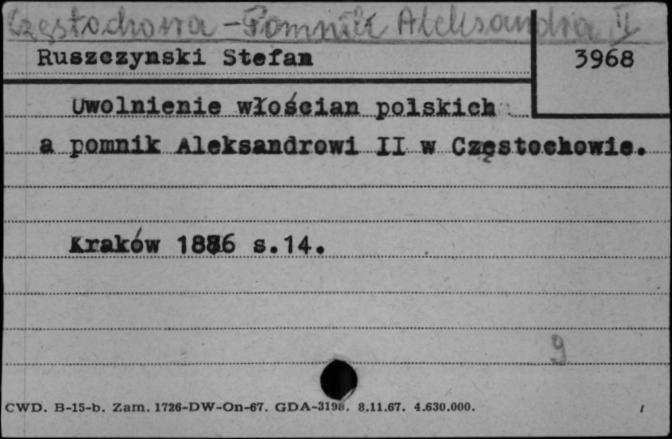 Częstochowa - Pomnik Aleksandra II
Ruszczynski Stefan
3968
Uwolnienie włościan polskich
a pomnik Aleksandrowi II w Częstochowie.
Kraków 1886 s.14.
9
CWD. B-15-b. Zam. 1726-DW-On-67. GDA-3198. 8.11.67. 4.630.000.